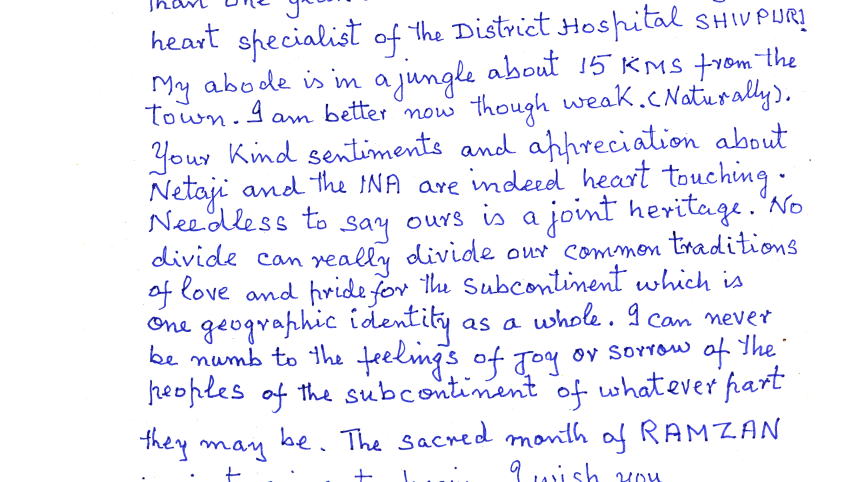 than one
heart specialist of the District Hospital SHIVPURI
My abode is in a jungle about 15 KMS from the
town. I am better now though weak. (Naturally).
Your Kind sentiments and appreciation about
Netaji and the INA are indeed heart touching.
Needless to say ours is a joint heritage. No
divide can really divide our common traditions
of love and pride for the subcontinent which is
one geographic identity as a whole. I can never
be numb to the feelings of Joy or sorrow of the
peoples of the subcontinent of whatever part
they may be. The sacred month of RAMZAN
I wish you